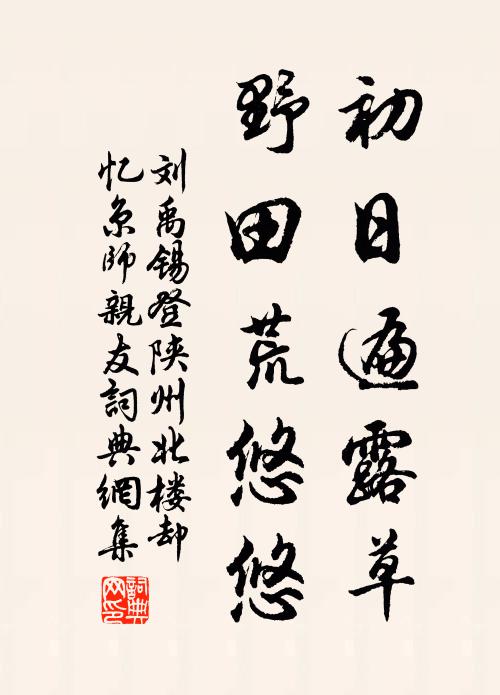 初日遍露草
野田荒悠悠
刘禹锡登陕州北楼却
忆京师親友詞典網集
詞典网印